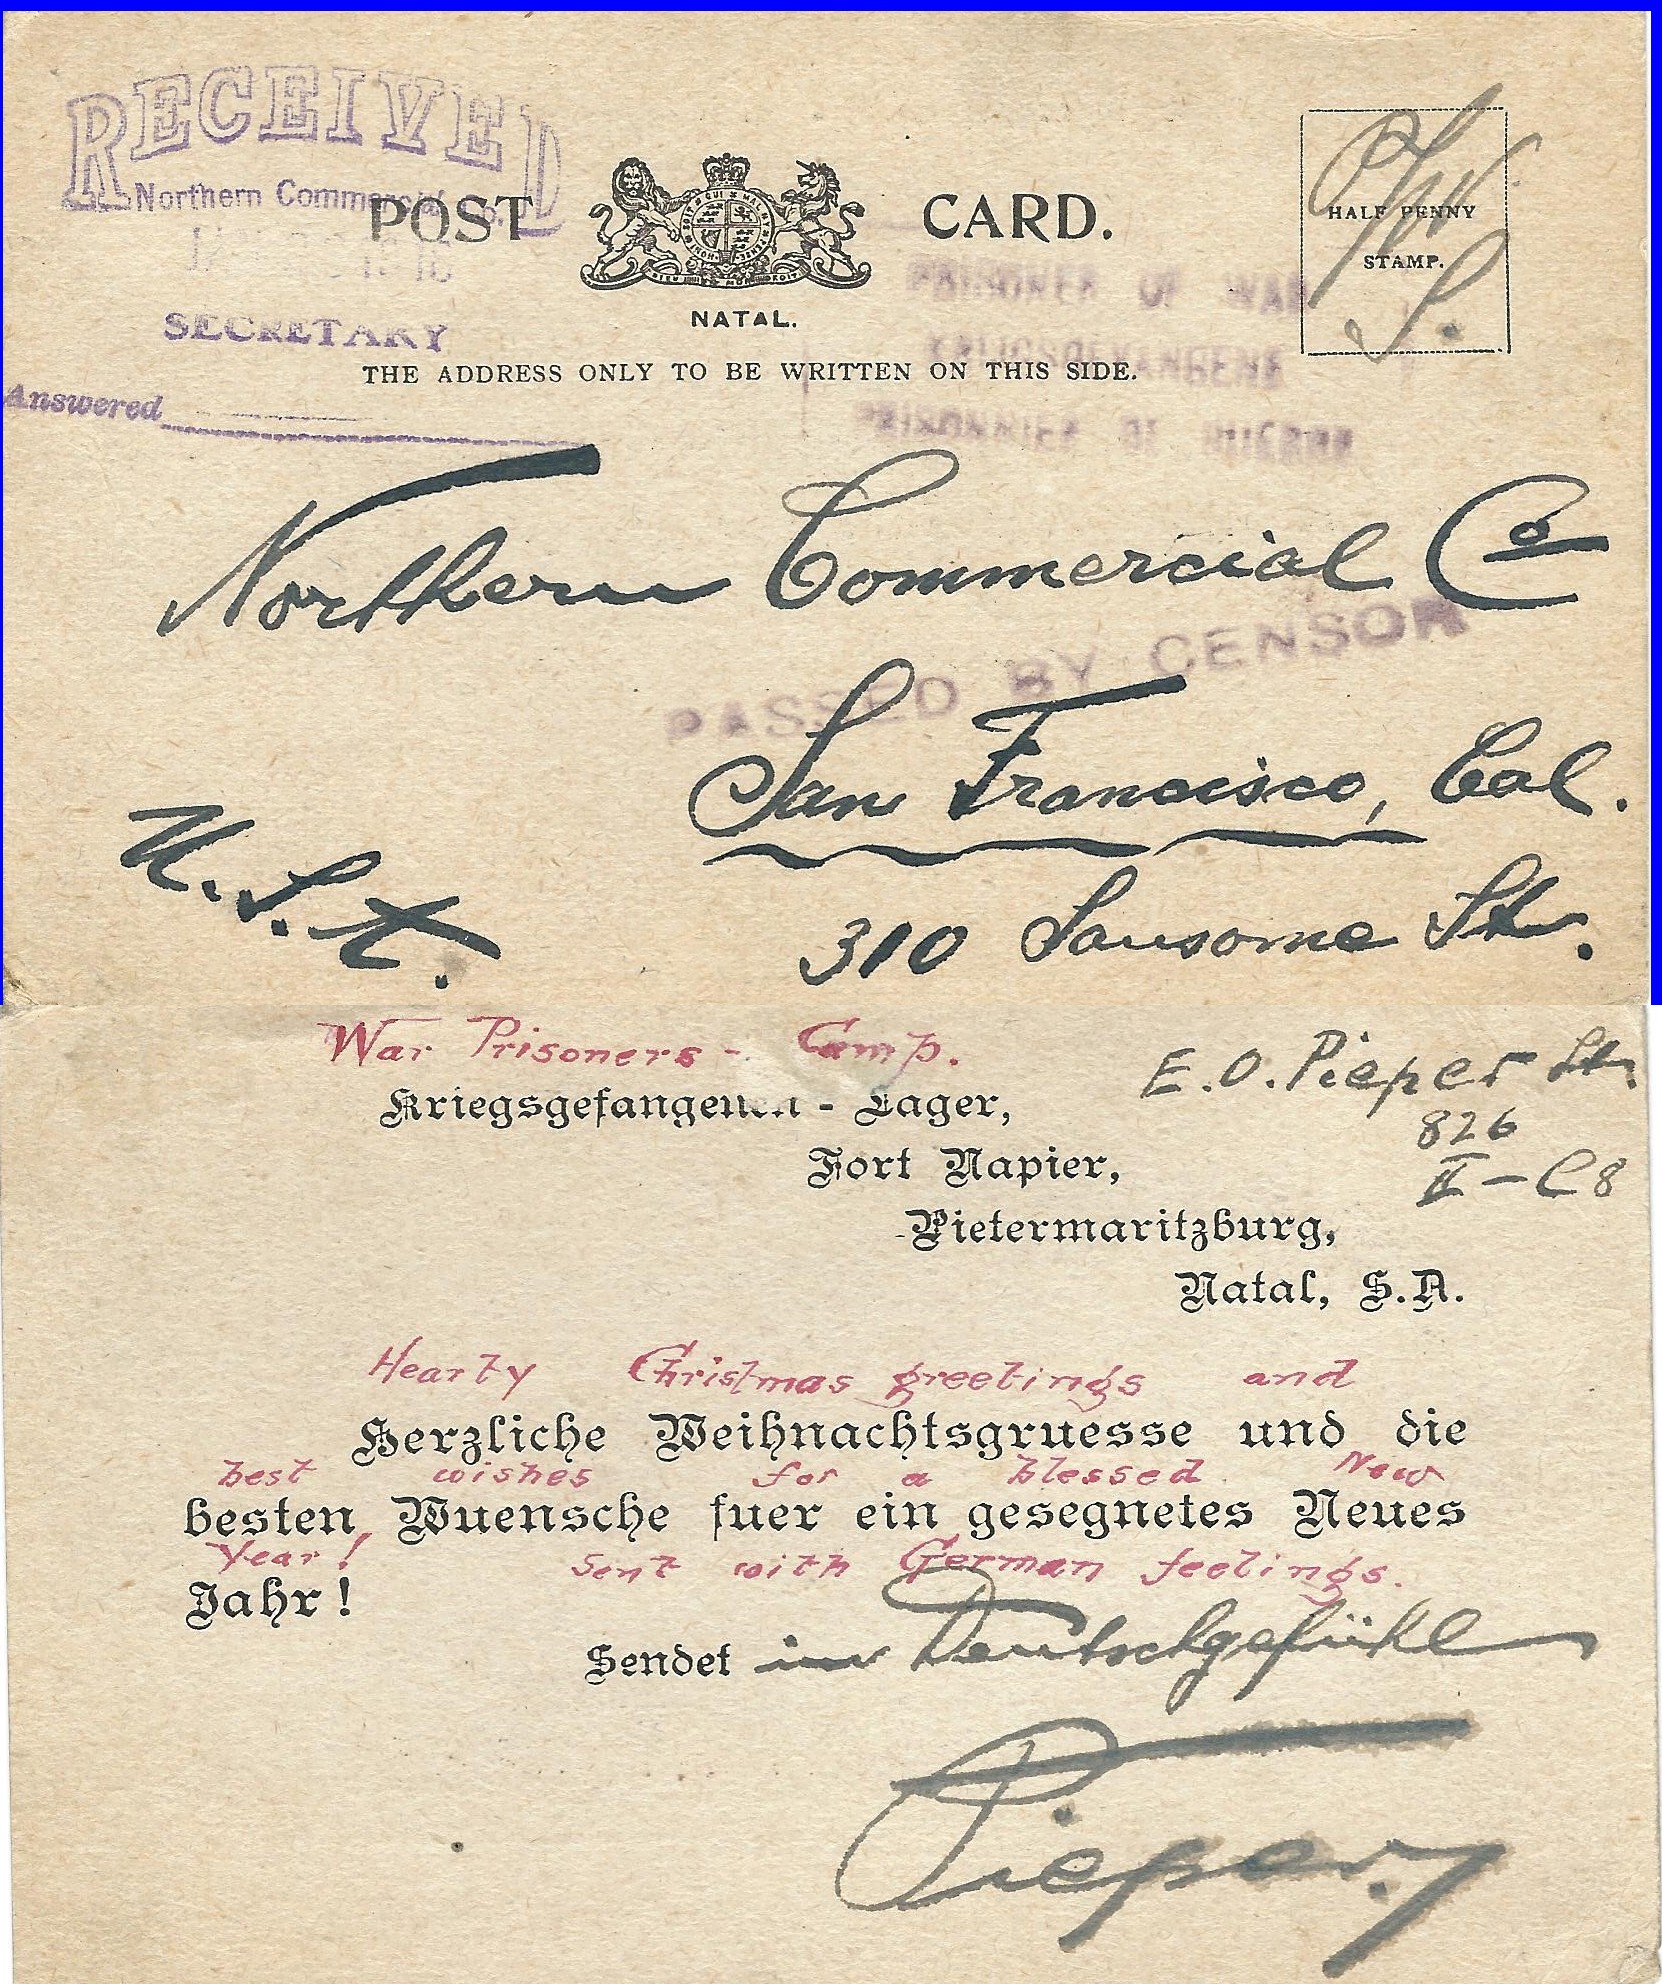 RECEIVED
Northern Commercial Co.
SECRETARY
Answered
POST CARD.
NATAL.
THE ADDRESS ONLY TO BE WRITTEN ON THIS SIDE.
HALF PENNY
STAMP.
PRISONER OF WAR
KRIEGSGEFANGENE
Northern Commercial Co
PASSED BY CENSOR
San Francisco, Cal.
310 Sansome St.
U.S.A.
War Prisoners - Camp.
Kriegsgefangenen - Lager,
Fort Napier,
Pietermaritzburg,
Natal, S.A.
E. O. Pieper
826
II - C8
Hearty Christmas greetings and
Herzliche Weihnachtsgruesse und die
best wishes for a blessed New
besten Wuensche fuer ein gesegnetes Neues
Year!
Jahr!
Sent with German feelings.
Sendet im Deutschgefühl
Pieper